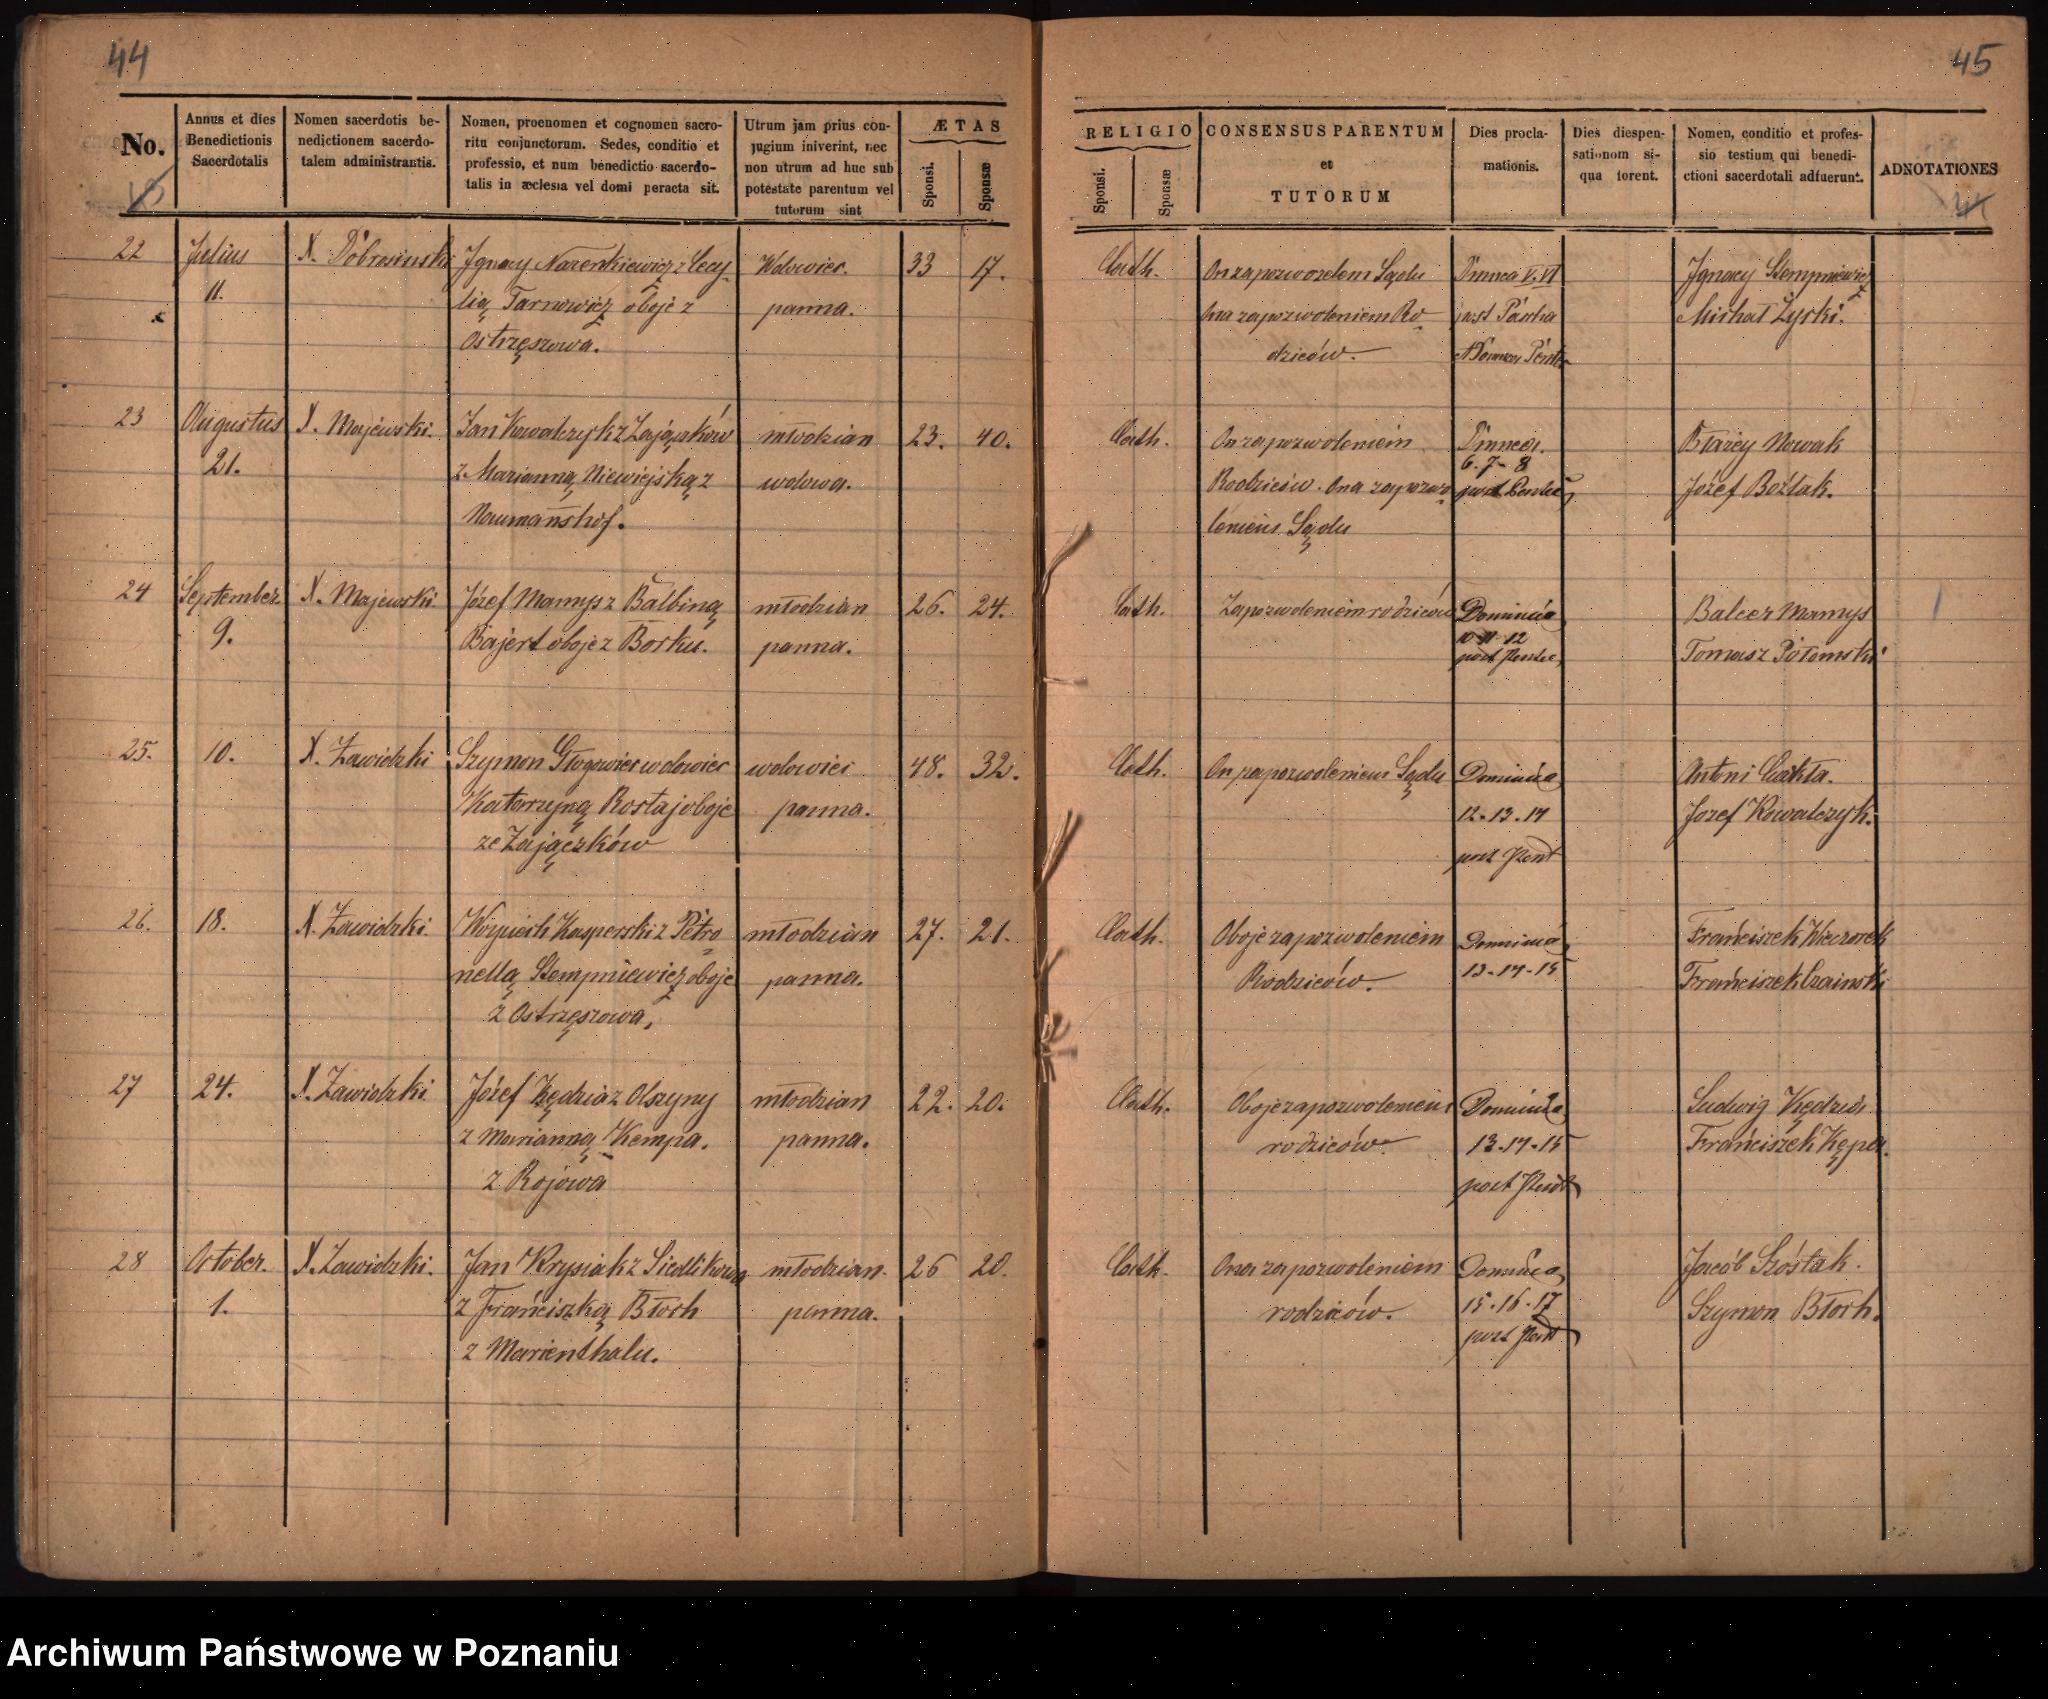 44
No.
Annus et dies
Benedictionis
Sacerdotalis
Nomen sacerdotis be-
nedictionem sacerdo-
talem administrantis.
Nomen, proenomen et cognomen sacro-
ritu conjunctorum. Sedes, conditio et
professio, et num benedictio sacerdo-
talis in æclesia vel domi peracta sit.
Utrum jam prius con-
jugium iniverint, nec
non utrum ad huc sub
potestate parentum vel
tutorum sint
ÆTAS
Sponsi.
Sponsæ
22
Julius
11.
X. Dobrosinski
Ignacy Nazenkiewicz z Cecy-
lią Tarnowicz oboje z
Ostrzęszowa.
Wdowiec.
panna.
33
17.
23
Augustus
21.
X. Majewski.
Jan Kowalczyk z Zajączków
z Marianną Niewiejską z
Naumanshof.
młodzian
wdowa.
23.
40.
24
September
9.
X. Majewski.
Józef Mamys z Balbiną
Bajert oboje z Borku.
młodzian
panna.
26.
24.
25.
10.
X. Zawidzki
Szymon Głogowiec wdowiec
Katarzyną Rostaj oboje
ze Zajączków
wdowiec
panna.
48.
32.
26.
18.
X. Zawidzki.
Wojciech Kasperski z Petro
nellą Stempniewicz oboje
z Ostrzęszowa.
młodzian
panna.
27.
21.
27
24.
X. Zawidzki.
Józef Kędzia z Olszyny
z Marianną Kempa.
z Rojowa
młodzian
panna.
22.
20.
28
October.
1.
X. Zawidzki.
Jan Krysiak z Siedlikowa
z Franciszką Błoch
z Marienthalu.
młodzian.
panna.
26
20.
45
RELIGIO
Sponsi.
Sponsæ
CONSENSUS PARENTUM
et
TUTORUM
Dies procla-
mationis.
Dies diespen-
sationom si-
qua forent.
Nomen, conditio et profes-
sio testium qui benedi-
ctioni sacerdotali adfuerunt.
ADNOTATIONES
Cath.
On za pozwozelem Sądu
Ona za pozwoleniem Ro-
dziców.
Dnnca V. VI
post Pascha
Ignacy Stempniewicz
Michał Żyski.
Cath.
On za pozwoleniem
Rodziców. Ona za pozwo
leniem Sądu
6. 7- 8
Błażej Nowak
Józef Boźtak.
Cath.
Za pozwoleniem rodziców
Dominica
10-11-12
post Pentec
Balcer Mamys
Tomasz Potomski
Cath.
On za pozwoleniem Sądu
Dominica
12-13-14
post Pent
Antoni
Jozef Kowalczyk.
Cath.
Oboje za pozwoleniem
Rodziców.
Dominica
13-14-15
Franciszek Wieczorek
Franciszek Czainski
Cath.
Oboje za pozwoleniem
rodziców.
Dominica
13-14-15
post Pent
Ludwig Kędzia
Franciszek Kępa.
Cath.
Ona za pozwoleniem
rodziców.
Dominica
15-16-17
post Pent
Jacób Szóstak.
Szymon Błoch.
Archiwum Państwowe w Poznaniu